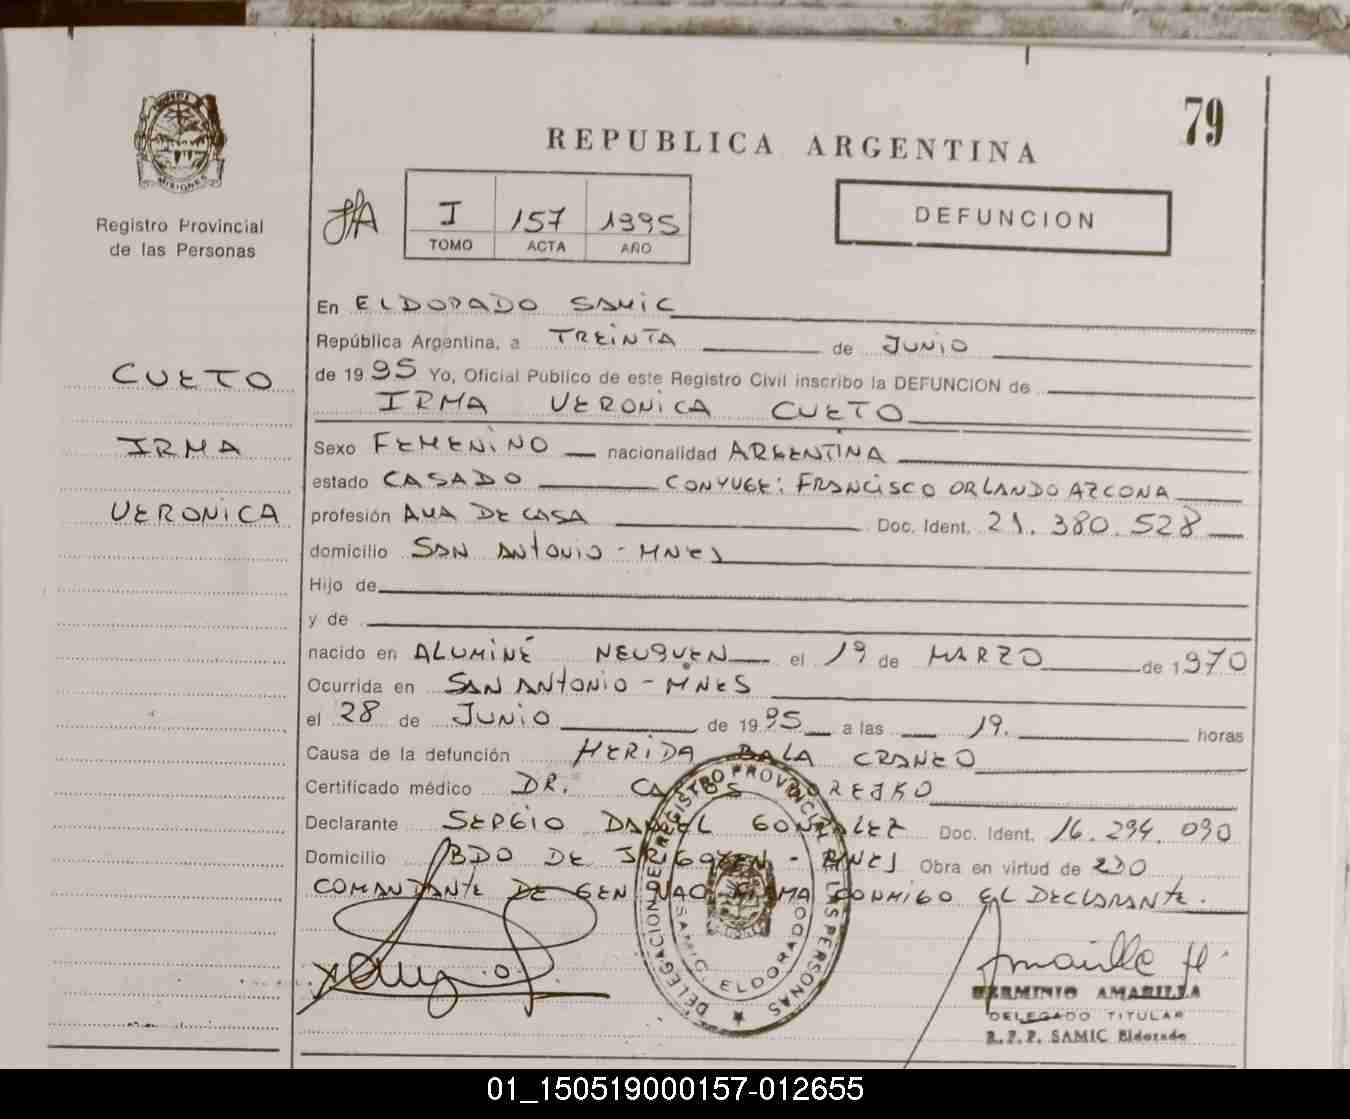 79
REPUBLICA ARGENTINA
MISIONES
Registro Provincial
de las Personas
I 157 1995
TOMO ACTA AÑO
DEFUNCION
CUETO
IRMA
VERONICA
En ELDORADO SAMIC
República Argentina, a TREINTA de JUNIO
de 1995 Yo, Oficial Público de este Registro Civil inscribo la DEFUNCION de
IRMA VERONICA CUETO
Sexo FEMENINO nacionalidad ARGENTINA
estado CASADO CONYUGE: FRANCISCO ORLANDO AZCONA
profesión AMA DE CASA Doc. Ident. 21.380.528
domicilio SAN ANTONIO - MNES
Hijo de
y de
nacido en ALUMINÉ NEUQUEN el 19 de MARZO de 1970
Ocurrida en SAN ANTONIO - MNES
el 28 de JUNIO de 1995 a las 19. horas
Causa de la defunción HERIDA BALA CRANEO
Certificado médico DR.
Declarante SERGIO DANIEL GONZALEZ Doc. Ident. 16.294.090
Domicilio BDO DE IRIGOYEN - MNES Obra en virtud de 2DO
COMANDANTE DE GEN NAC FIRMA CONMIGO EL DECLARANTE.
DELEGACION DE REGISTRO PROVINCIAL DE LAS PERSONAS
SAMIC ELDORADO
Amarilla H.
HERMINIO AMARILLA
DELEGADO TITULAR
R.P.P. SAMIC Eldorado
01_150519000157-012655